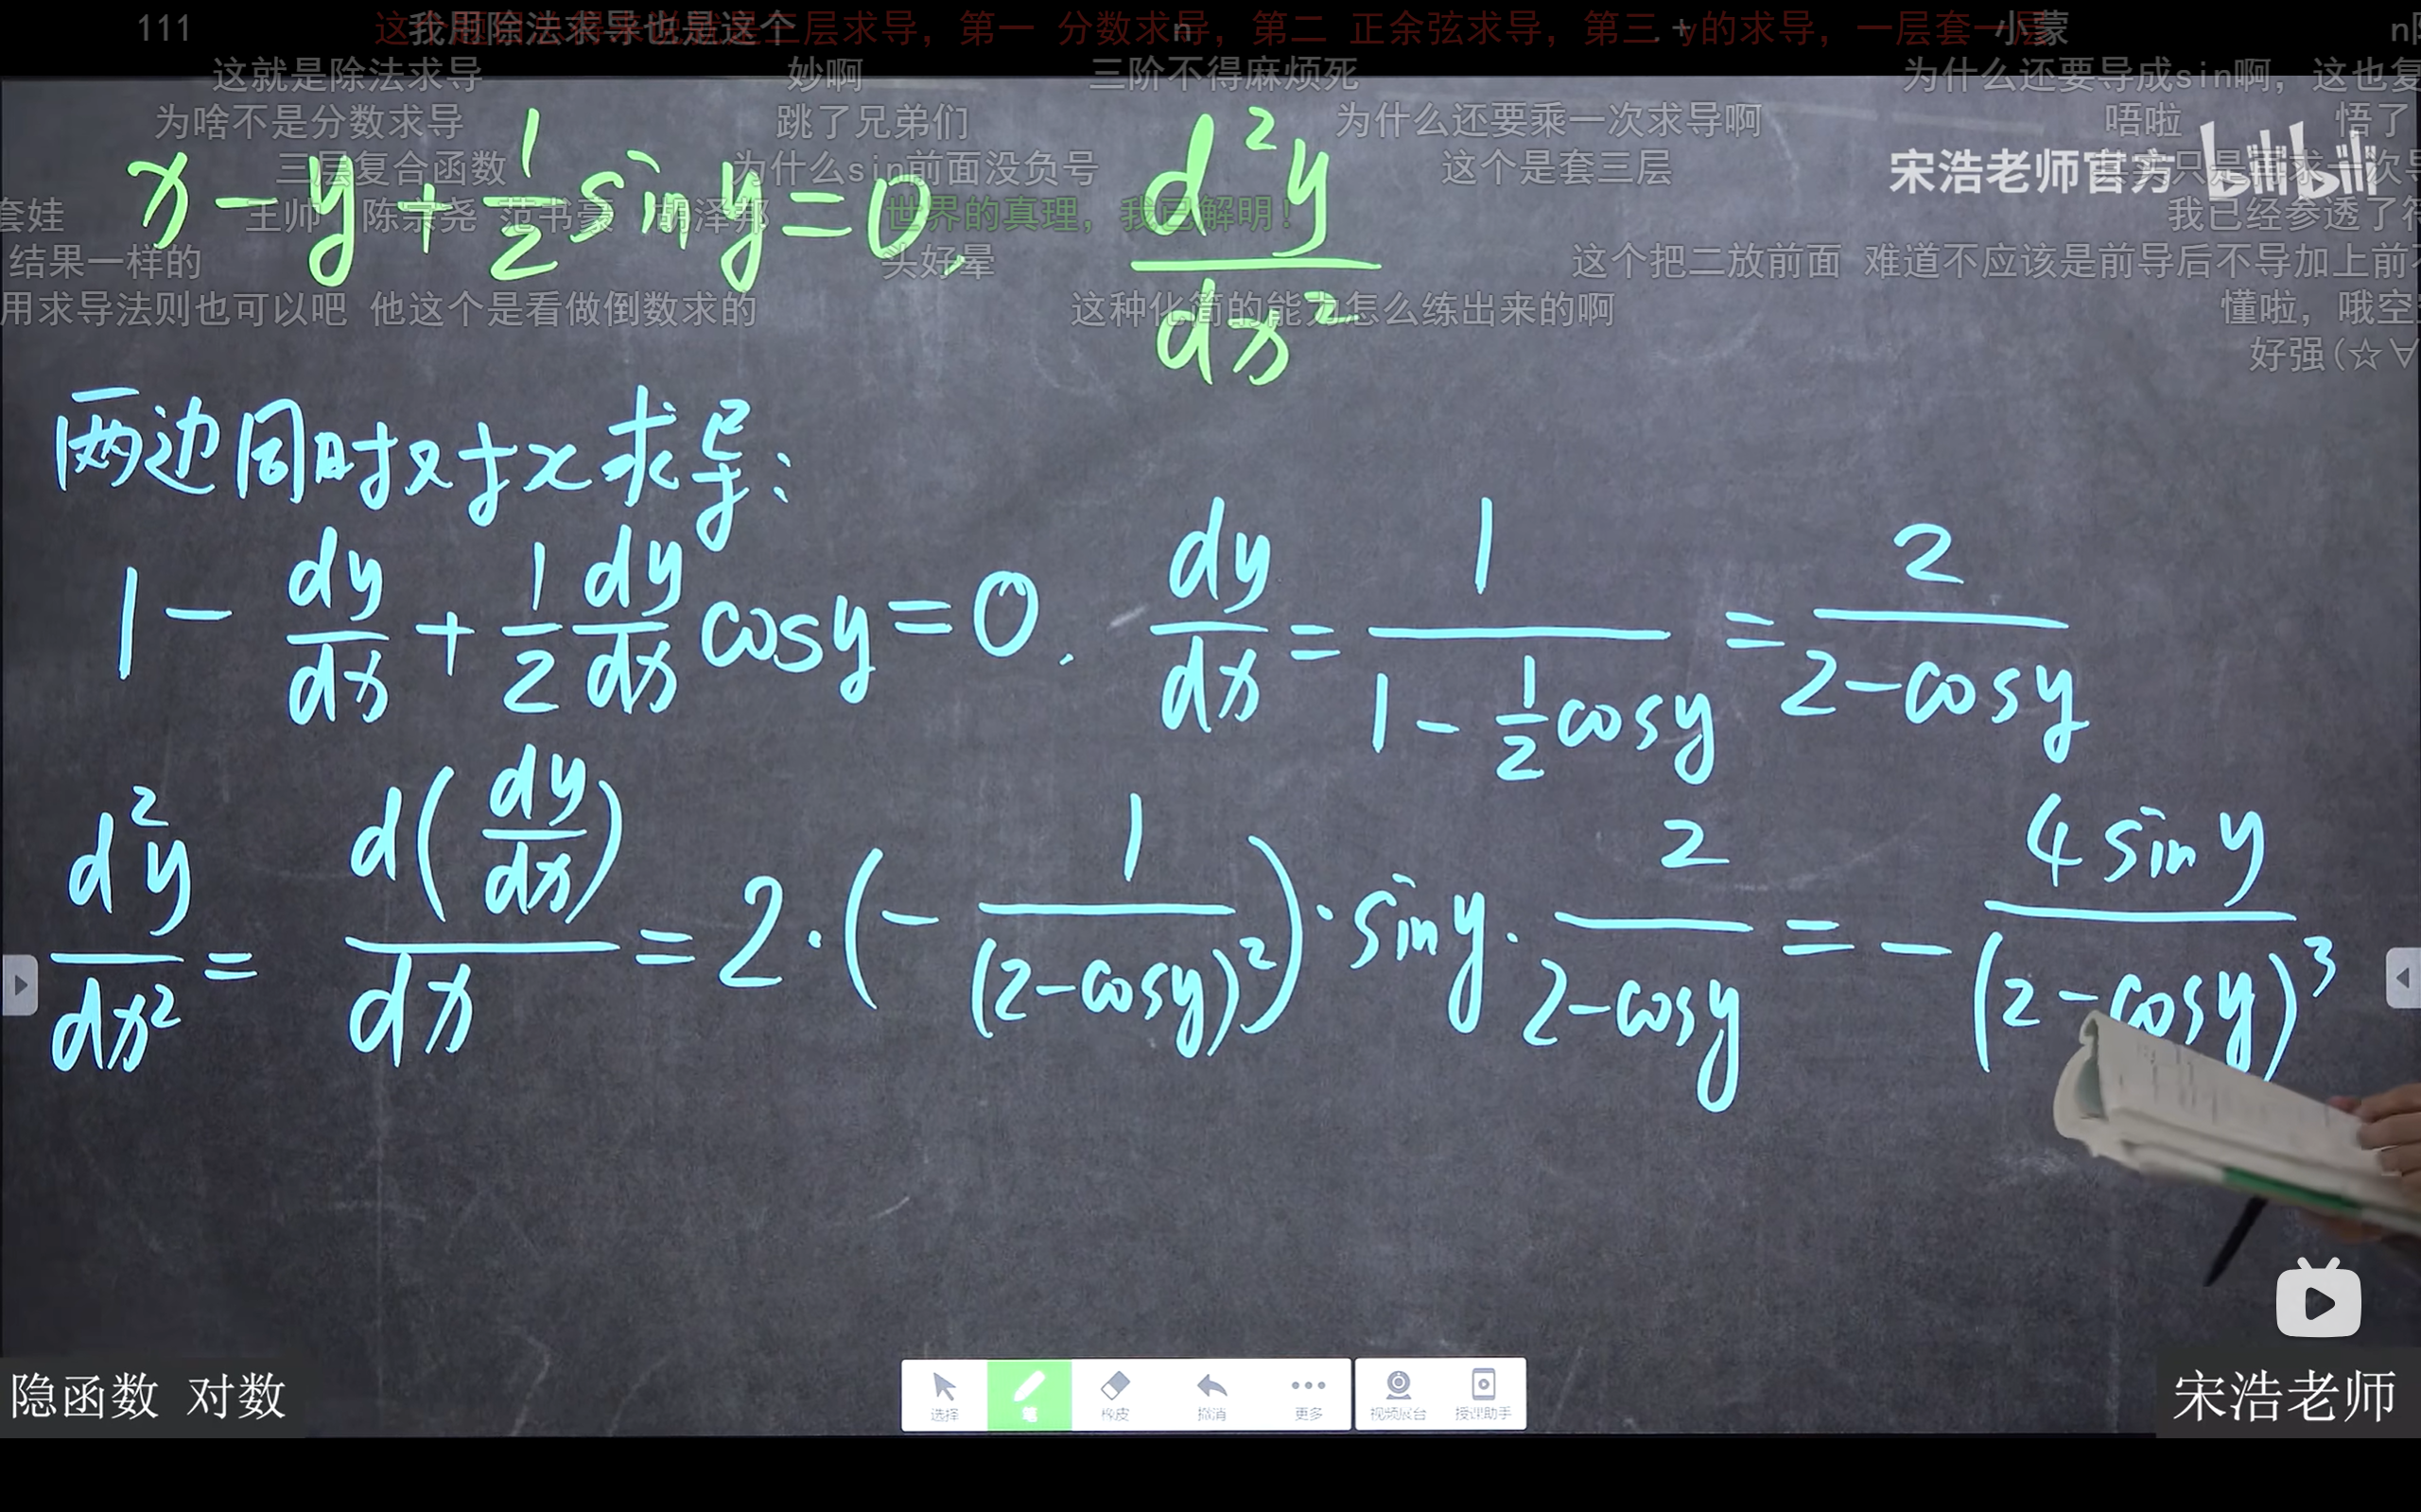 111 我用除法求导也是这个 小蒙
这就是除法求导 妙啊 三阶不得麻烦死 为什么还要导成sin啊，这也复
为啥不是分数求导 跳了兄弟们 为什么还要乘一次求导啊 唔啦 悟了
三层复合函数 为什么sin前面没负号 这个是套三层
宋浩老师官方 bilibili
套娃 王帅 范书豪 胡泽邦 世界的真理，我已解明！ 我已经参透了
结果一样的 头好晕 这个把二放前面 难道不应该是前导后不导加上前
用求导法则也可以吧 他这个是看做倒数求的 这种化简的能力怎么练出来的啊 懂啦，哦空
好强(☆∀
x-y+1/2 sin y=0, d²y/dx²
两边同时对x求导:
1- dy/dx + 1/2 dy/dx cosy=0. dy/dx = 1/(1-1/2 cosy) = 2/(2-cosy)
d²y/dx² = d(dy/dx)/dx = 2·(- 1/(2-cosy)²)·siny· 2/(2-cosy) = - 4siny/(2-cosy)³
隐函数 对数
选择 笔 橡皮 撤消 更多 视频展台 授课助手
宋浩老师